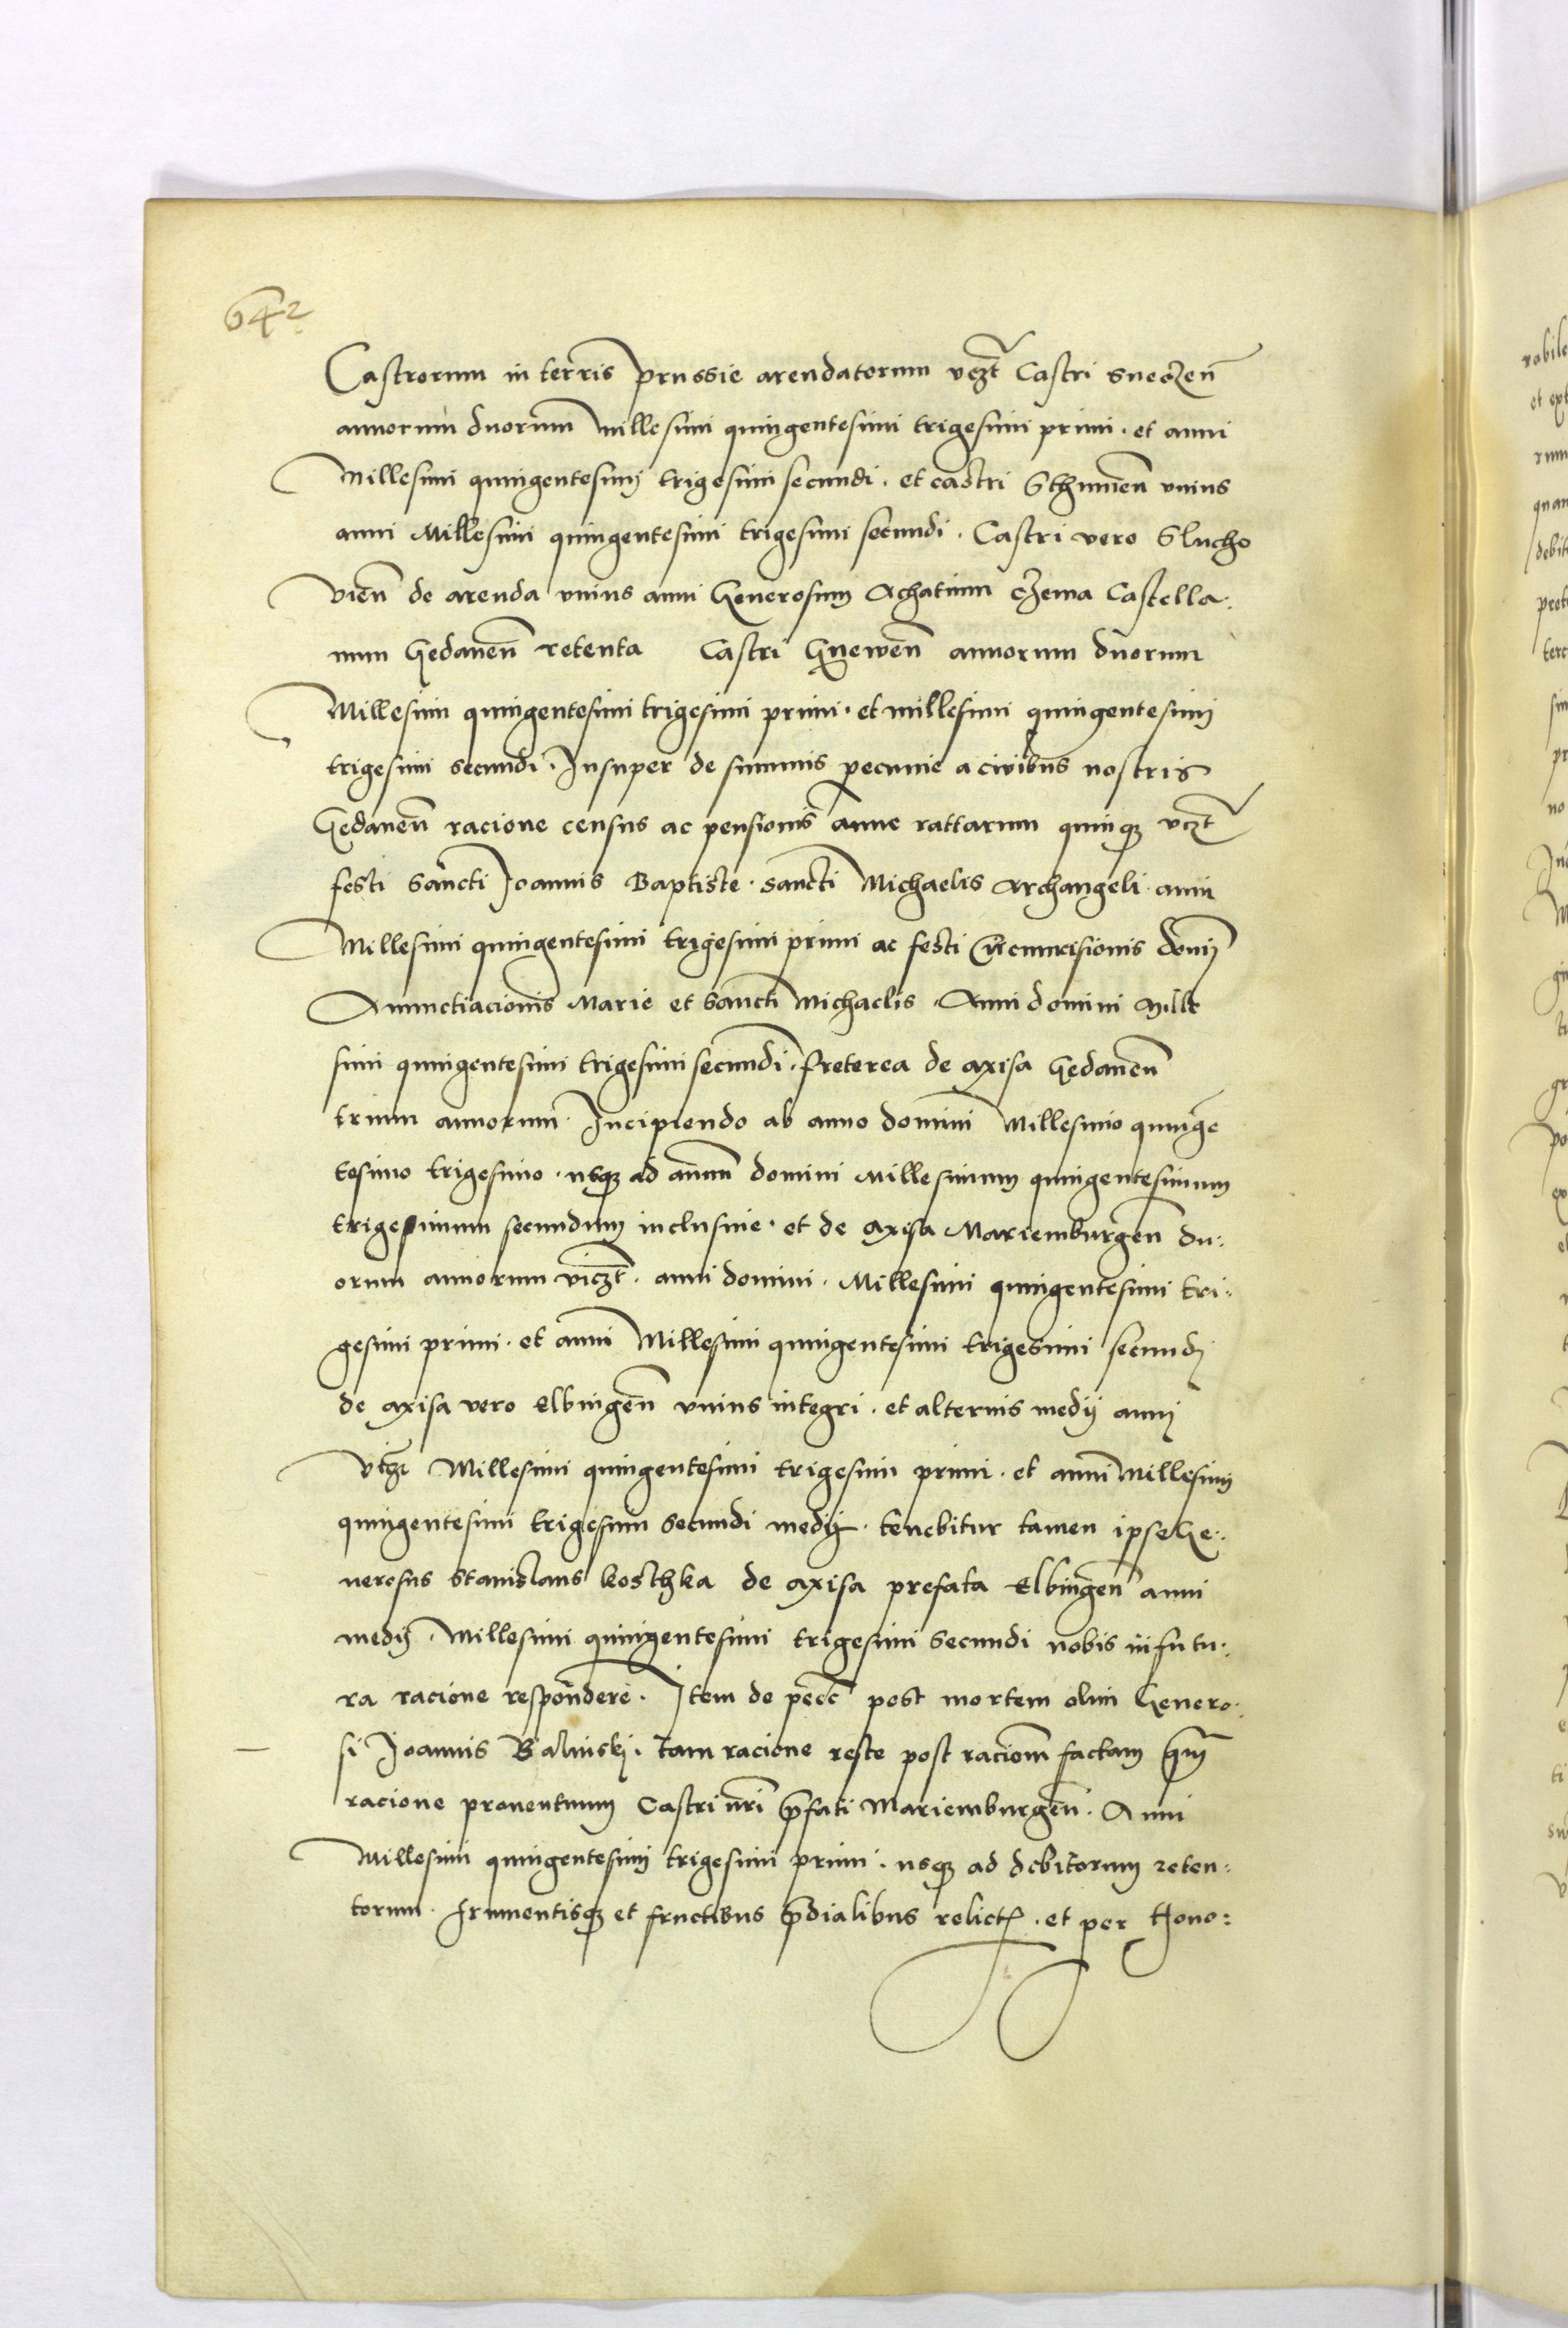 642
Castrorum in terris prussie arendatorum vczt Castri Sweczen̄
annorum duorum millesimi quingentesimi trigesimi primi. et anni
Millesimi quingentesimj trigesimi secundi. et castri Sthumen̄ vnius
anni Millesimi quingentesimi trigesimi secundi. Castri vero Slucho
vien̄ de arenda vnius anni Generosum Achatium Czema Castella:
num Gedanen̄ retenta Castri Gnewen̄ annorum duorum
Millesimi quingentesimi trigesimi primi. et millesimi quingentesimj
trigesimi secundi. Insuper de summis pecunie a civibus nostris
Gedanen̄ racione census ac pensionis anne rattarum quinqȝ vczt
festi Sancti Joannis Baptiste. Sancti Michaelis Archangeli. anni
Millesimi quingentesimi trigesimi primi ac festi Circumcisionis domīj
Annunctiacionis Marie et Sancti Michaelis. Anni domini Mille
simi quingentesimi trigesimi secundi. Preterea de axisa Gedanen̄
trium annorum. Incipiendo ab anno domini Millesimo quinge
tesimo trigesimo. usqȝ ad annū domini Millesimum quingentesimum
trigesimum secundum inclusiue. et de axisa Mariemburgen̄ du:
orum annorum viczt. anni domini. Millesimi quingentesimi tri:
gesimi primi. et anni Millesimi quingentesimi trigesimi secundj
de axisa vero Elbingen̄ vnius integri. et alterius medij annj
vtqȝ Millesimi quingentesimi trigesimi primi. et anni Millesimj
quingentesimi trigesimi secundi medij. tenebitur tamen ipse Ge:
nerosus Stanislaus Kosthka de axisa prefata Elbingen̄ anni
medij. Millesimi quingentesimi trigesimi secundi nobis in futu:
ra racione respondere. Item de pecc̄ post mortem olim Genero:
si Joannis Balinskj. tam racione reste post racionē factam q̄m
racione prouentuum Castri nr̄i p̄fati Mariemburgen̄. Anni
Millesimi quingentesimj trigesimi primi. usqȝ ad debitorum reten:
torum. frumentisqȝ et fructibus p̄dialibus relict. et per Hono: